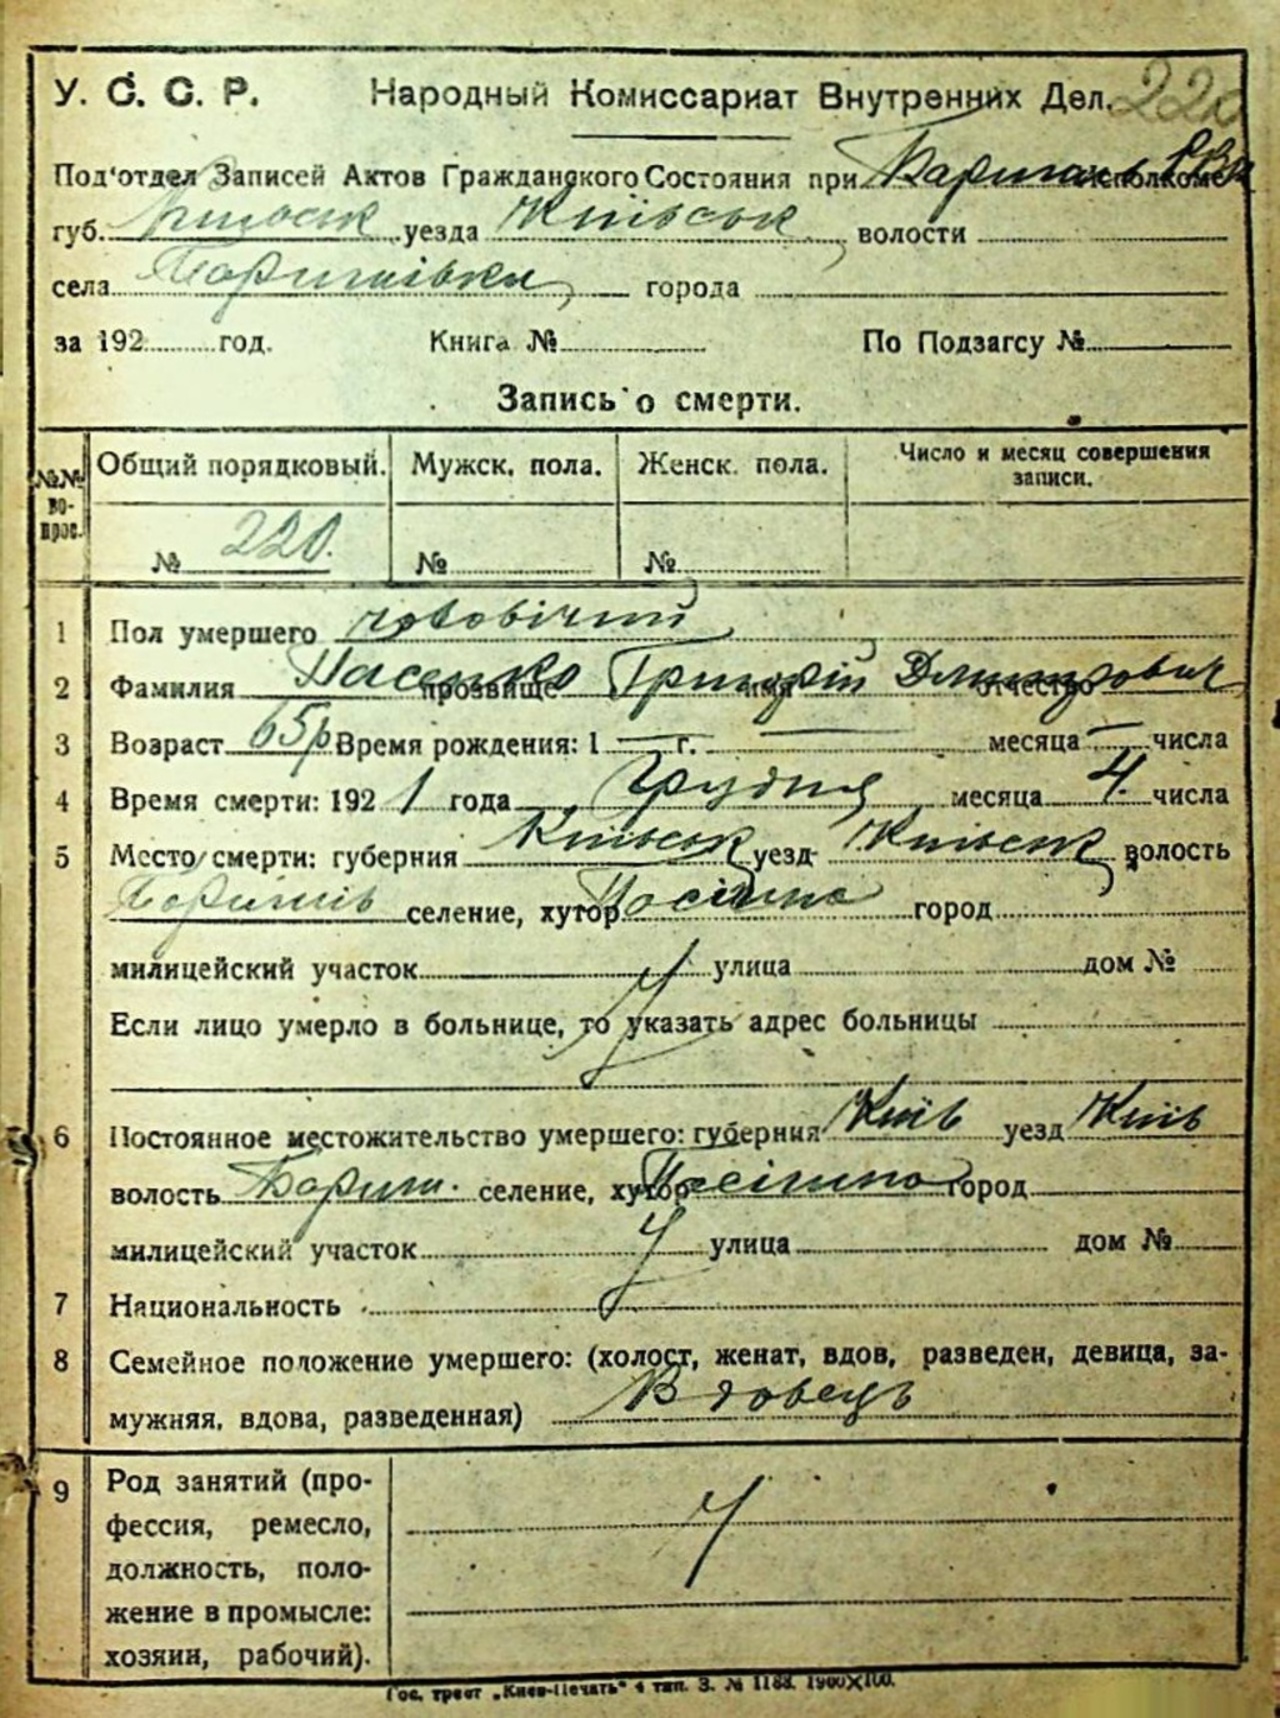 У. С. С. Р. Народный Комиссариат Внутренних Дел. 220
Под'отдел Записей Актов Гражданского Состояния при исполкоме
губ. уезда Київськ волости
села города
за 192 год. Книга № По Подзагсу №
Запись о смерти.
№№ вопрос. Общий порядковый. Мужск. пола. Женск. пола. Число и месяц совершения записи.
№ 220. № №
1 Пол умершего чоловічий
2 Фамилия прозвище Григорій имя Дмитрович отчество
3 Возраст 65 р Время рождения: 1 — г. — месяца — числа
4 Время смерти: 192 1 года Грудня месяца 4. числа
5 Место смерти: губерния Київськ уезд Київськ волость
селение, хутор город
милицейский участок улица дом №
Если лицо умерло в больнице, то указать адрес больницы
6 Постоянное местожительство умершего: губерния Київ уезд Київ
волость селение, хутор город
милицейский участок улица дом №
7 Национальность
8 Семейное положение умершего: (холост, женат, вдов, разведен, девица, за-
мужняя, вдова, разведенная) Вдовець
9 Род занятий (про-
фессия, ремесло,
должность, поло-
жение в промысле:
хозяин, рабочий).
Гос. трест „Киев-Печать" 4 тип. З. № 1188. 1900×100.